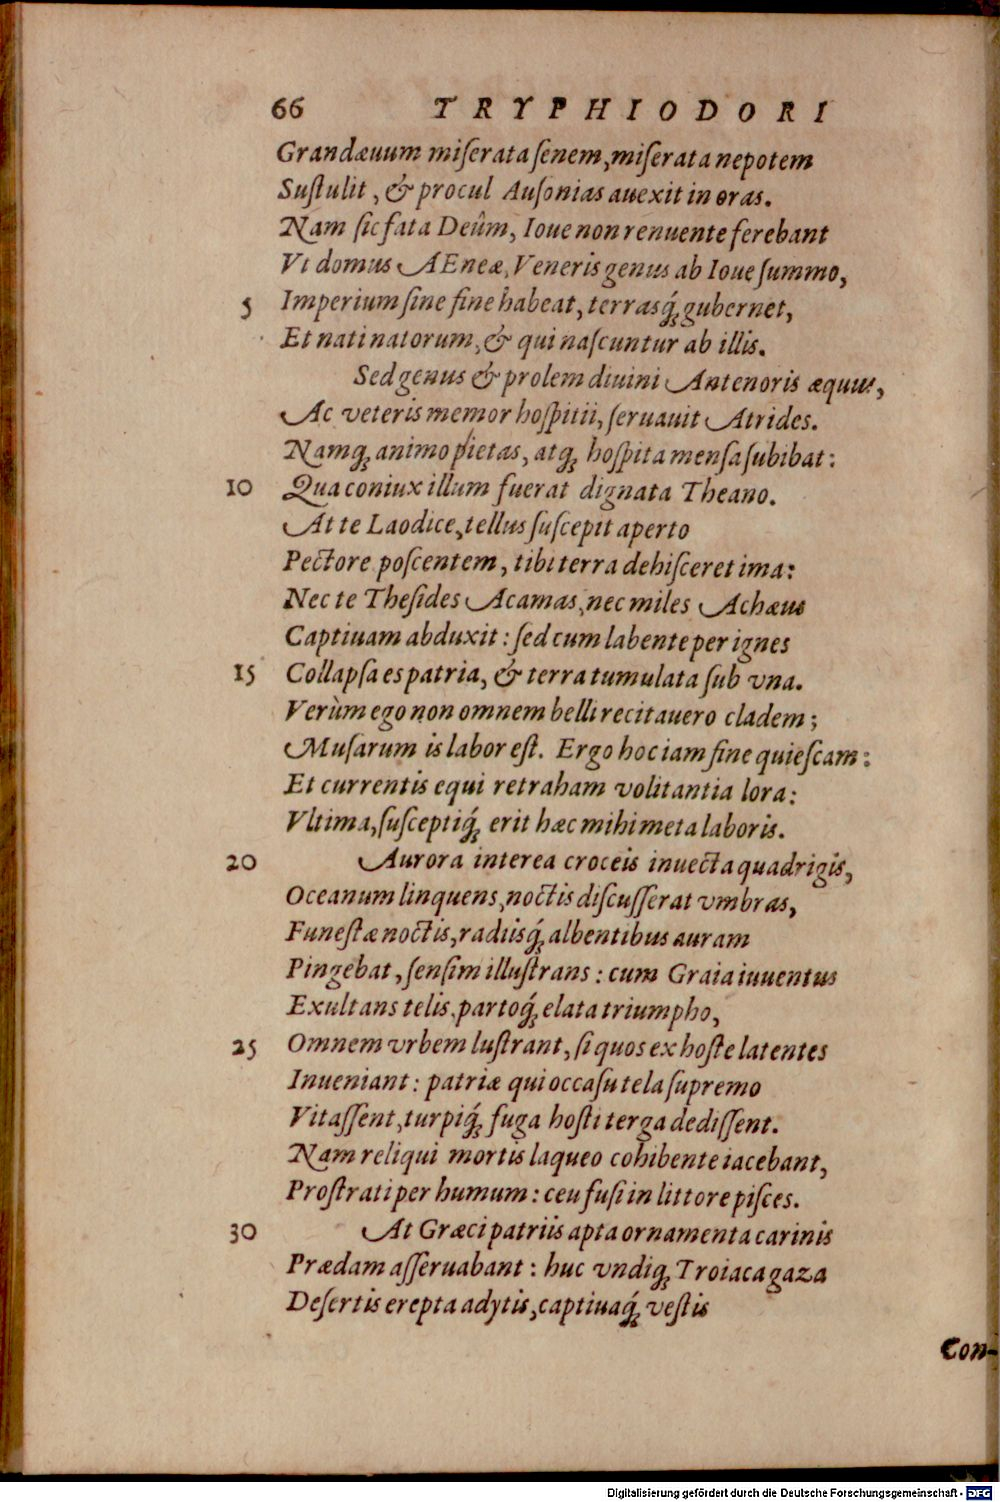 66 TRYPHIODORI
Grandæuum miſerata ſenem, miſerata nepotem
Suſtulit, & procul Auſonias auexit in oras.
Nam ſic fata Deûm, Ioue non renuente ferebant
Vt domus AEneæ, Veneris genus ab Ioue ſummo,
5 Imperium ſine fine habeat, terrasq́ꝫ gubernet,
Et nati natorum, & qui naſcuntur ab illis.
Sed genus & prolem diuini Antenoris æquus,
Ac veteris memor hoſpitii, ſeruauit Atrides.
Namqꝫ animo pietas, atqꝫ hoſpita menſa ſubibat:
10 Qua coniux illum fuerat dignata Theano.
At te Laodice, tellus ſuſcepit aperto
Pectore poſcentem, tibi terra dehiſceret ima:
Nec te Theſides Acamas, nec miles Achæus
Captiuam abduxit: ſed cum labente per ignes
15 Collapſa es patria, & terra tumulata ſub vna.
Verùm ego non omnem belli recitauero cladem;
Muſarum is labor eſt. Ergo hoc iam fine quieſcam:
Et currentis equi retraham volitantia lora:
Vltima, ſuſceptiq́ꝫ erit hæc mihi meta laboris.
20 Aurora interea croceis inuecta quadrigis,
Oceanum linquens, noctis diſcuſſerat vmbras,
Funeſtæ noctis, radiisq́ꝫ albentibus auram
Pingebat, ſenſim illuſtrans: cum Graia iuuentus
Exultans telis, partoq́ꝫ elata triumpho,
25 Omnem vrbem luſtrant, ſi quos ex hoſte latentes
Inueniant: patriæ qui occaſu tela ſupremo
Vitaſſent, turpiq́ꝫ fuga hoſti terga dediſſent.
Nam reliqui mortis laqueo cohibente iacebant,
Proſtrati per humum: ceu fuſi in littore piſces.
30 At Græci patriis apta ornamenta carinis
Prædam aſſeruabant: huc vndiqꝫ Troiaca gaza
Deſertis erepta adytis, captiuaq́ꝫ veſtis
Con-
Digitalisierung gefördert durch die Deutsche Forschungsgemeinschaft - DFG